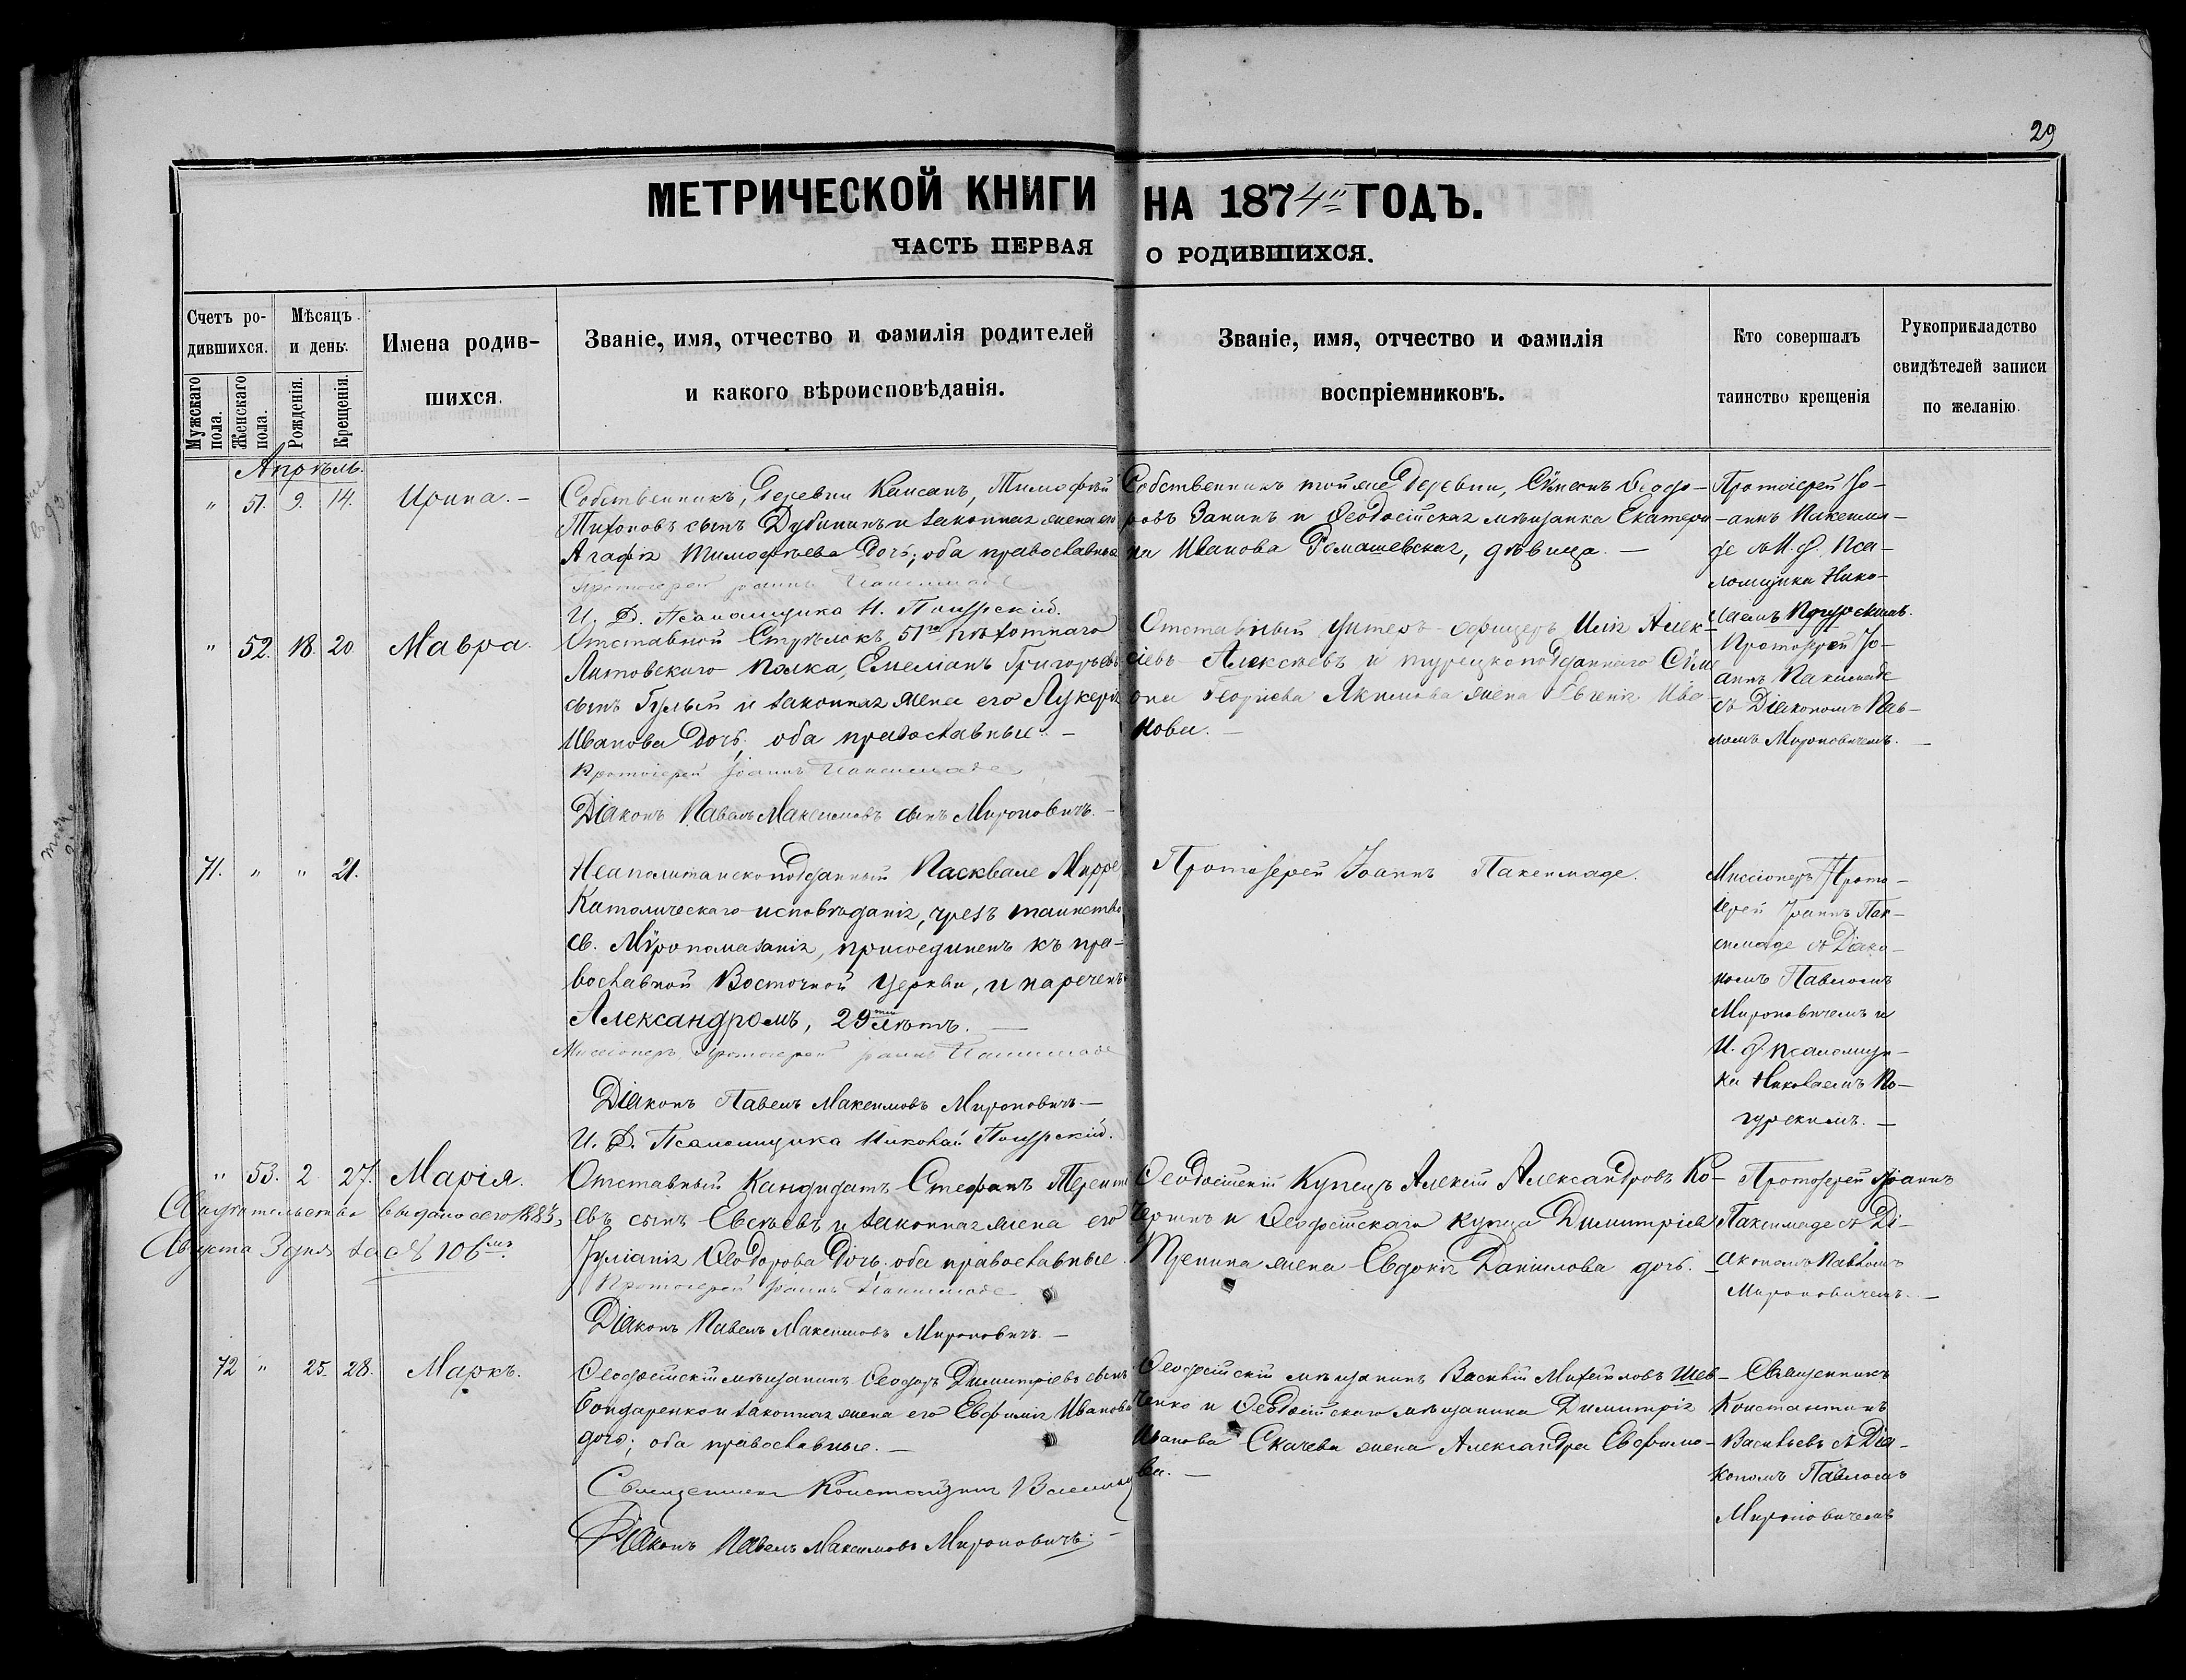 29
МЕТРИЧЕСКОЙ КНИГИ НА 1874й ГОДЪ.
ЧАСТЬ ПЕРВАЯ О РОДИВШИХСЯ.
Счетъ ро-
дившихся.
Мужскаго пола.
Женскаго пола.
Мѣсяцъ
и день.
Рожденія.
Крещенія.
Имена родив-
шихся.
Званіе, имя, отчество и фамилія родителей
и какого вѣроисповѣданія.
Званіе, имя, отчество и фамилія
воспріемниковъ.
Кто совершалъ
таинство крещенія
Рукоприкладство
свидѣтелей записи
по желанію.
Апрѣль.
" 51. 9. 14. Ирина. –
Собственникъ, деревни Кансанъ, Тимофѣй
Тихоновъ сынъ Дубининъ и законная жена его
Агафія Тимофѣева дочь; оба православные
Протоіерей Іоаннъ Паксимаде
И. Д. Псаломщика Н. Погурскій.
Собственникъ тойже деревни, Сѵмеонъ Ѳеодо-
ровъ Занинъ и Ѳеодосійская мѣщанка Екатери-
на Иванова Ромашевская, дѣвица. –
Протоіерей Іо-
аннъ Паксима-
де съ И. д. Пса-
ломщика Нико-
лаемъ Погурскимъ.
" 52. 18. 20. Мавра.
Отставной Стрѣлокъ 51го пѣхотнаго
Литовскаго полка, Емеліанъ Григорьевъ
сынъ Гулый и законная жена его Лукерія
Иванова дочь, оба православные. –
Протоіерей Іоаннъ Паксимаде
Діаконъ Павелъ Максимовъ сынъ Мироновичъ. –
Отставный унтеръ-офицеръ Илія Алек-
сіевъ Алексѣевъ и турецкоподданнаго Сѵме
она Георгіева Якимова жена Евгенія Ива-
нова. –
Протоіерей Іо-
аннъ Паксимаде
съ Діакономъ Пав-
ломъ Мироновичемъ. –
71. " " 21.
Неаполитанскоподданный Пасквале Мирре
Католическаго исповѣданія, чрезъ таинство
св. Мѵропомазанія, присоединенъ къ пра-
вославной Восточной Церкви, и нареченъ
Александромъ, 29ти лѣтъ. –
Миссіонеръ, Протоіерей Іоаннъ Паксимаде
Діаконъ Павелъ Максимовъ Мироновичъ –
И. Д. Псаломщика Николай Погурскій.
Протоіерей Іоаннъ Паксимаде.
Миссіонеръ Прото-
іерей Іоаннъ Пак-
симаде съ Діако-
номъ Павломъ
Мироновичемъ и
И. д. псаломщи-
ка Николаемъ По-
гурскимъ. –
" 53. 2 27. Марія.
Свидѣтельство выдано сего 1883,
Августа 3 дня за № 106мъ.
Отставный Кандидатъ Стефанъ Теренті
евъ сынъ Евсѣевъ и законная жена его
Іуліанія Ѳеодорова дочь, оба православные.
Протоіерей Іоаннъ Паксимаде
Діаконъ Павелъ Максимовъ Мироновичъ. –
Ѳеодосійскій Купецъ Алексій Александровъ Ко-
чергинъ и Ѳеодосійскаго купца Димитрія
жена Евдокія Данилова дочь. –
Протоіерей Іоаннъ
Паксимаде съ Ді-
акономъ Павломъ
Мироновичемъ. –
72 " 25. 28. Маркъ.
Ѳеодосійскій мѣщанинъ Ѳеодоръ Димитріевъ сынъ
Бондаренко и законная жена его Евфимія Иванова
дочь; оба православные. –
Священникъ Константинъ Васильевъ
Діаконъ Павелъ Максимовъ Мироновичъ. –
Ѳеодосійскій мѣщанинъ Василій Михайловъ Шев-
ченко и Ѳеодосійскаго мѣщанина Димитрія
Иванова Скачева жена Александра Евфимо-
ва. –
Священникъ
Константинъ
Васильевъ съ Діа-
кономъ Павломъ
Мироновичемъ